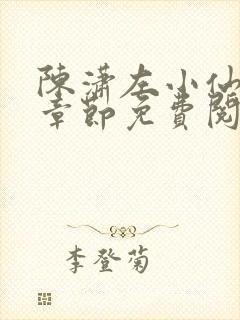 陳瀟左小仙
章節免費閱
李登菊